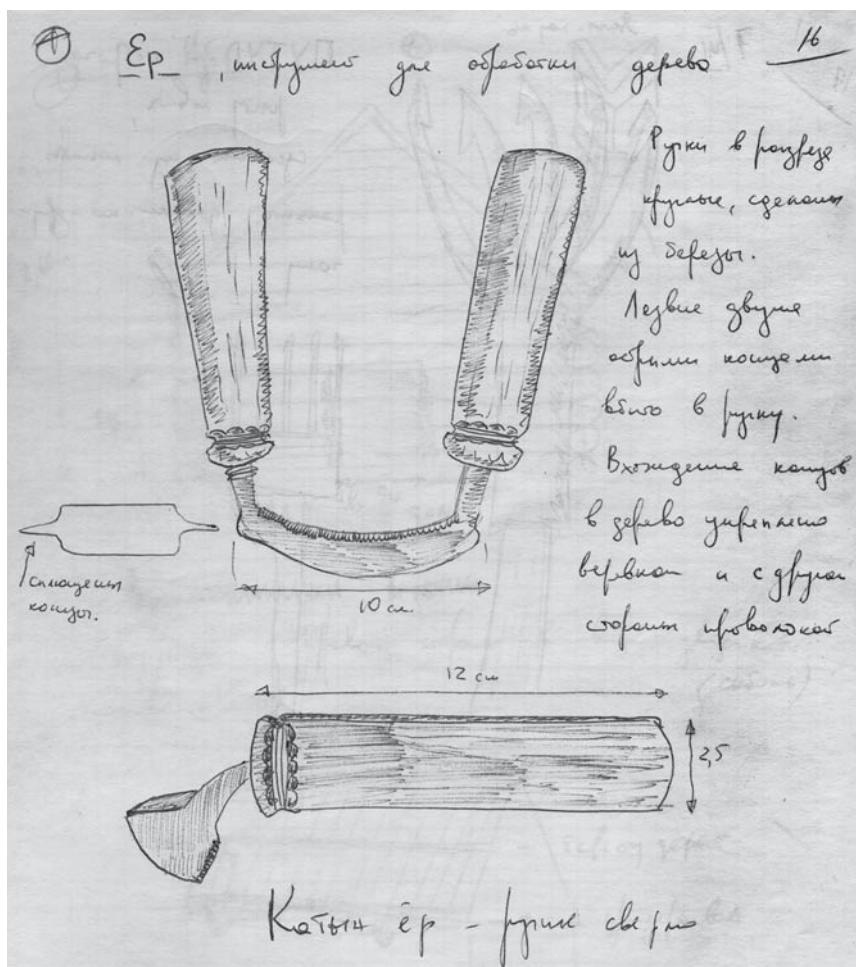 1
16
Ер, инструмент для обработки дерево
Ручки в разрезе
круглые, сделаны
из березы.
Лезвие двумя
концами
вбито в ручку.
Вхождение концов
в дерево укреплено
веревкой и с другой
стороны проволокой
концы.
10 см
12 см
2,5
Катын ёр – ручное сверло